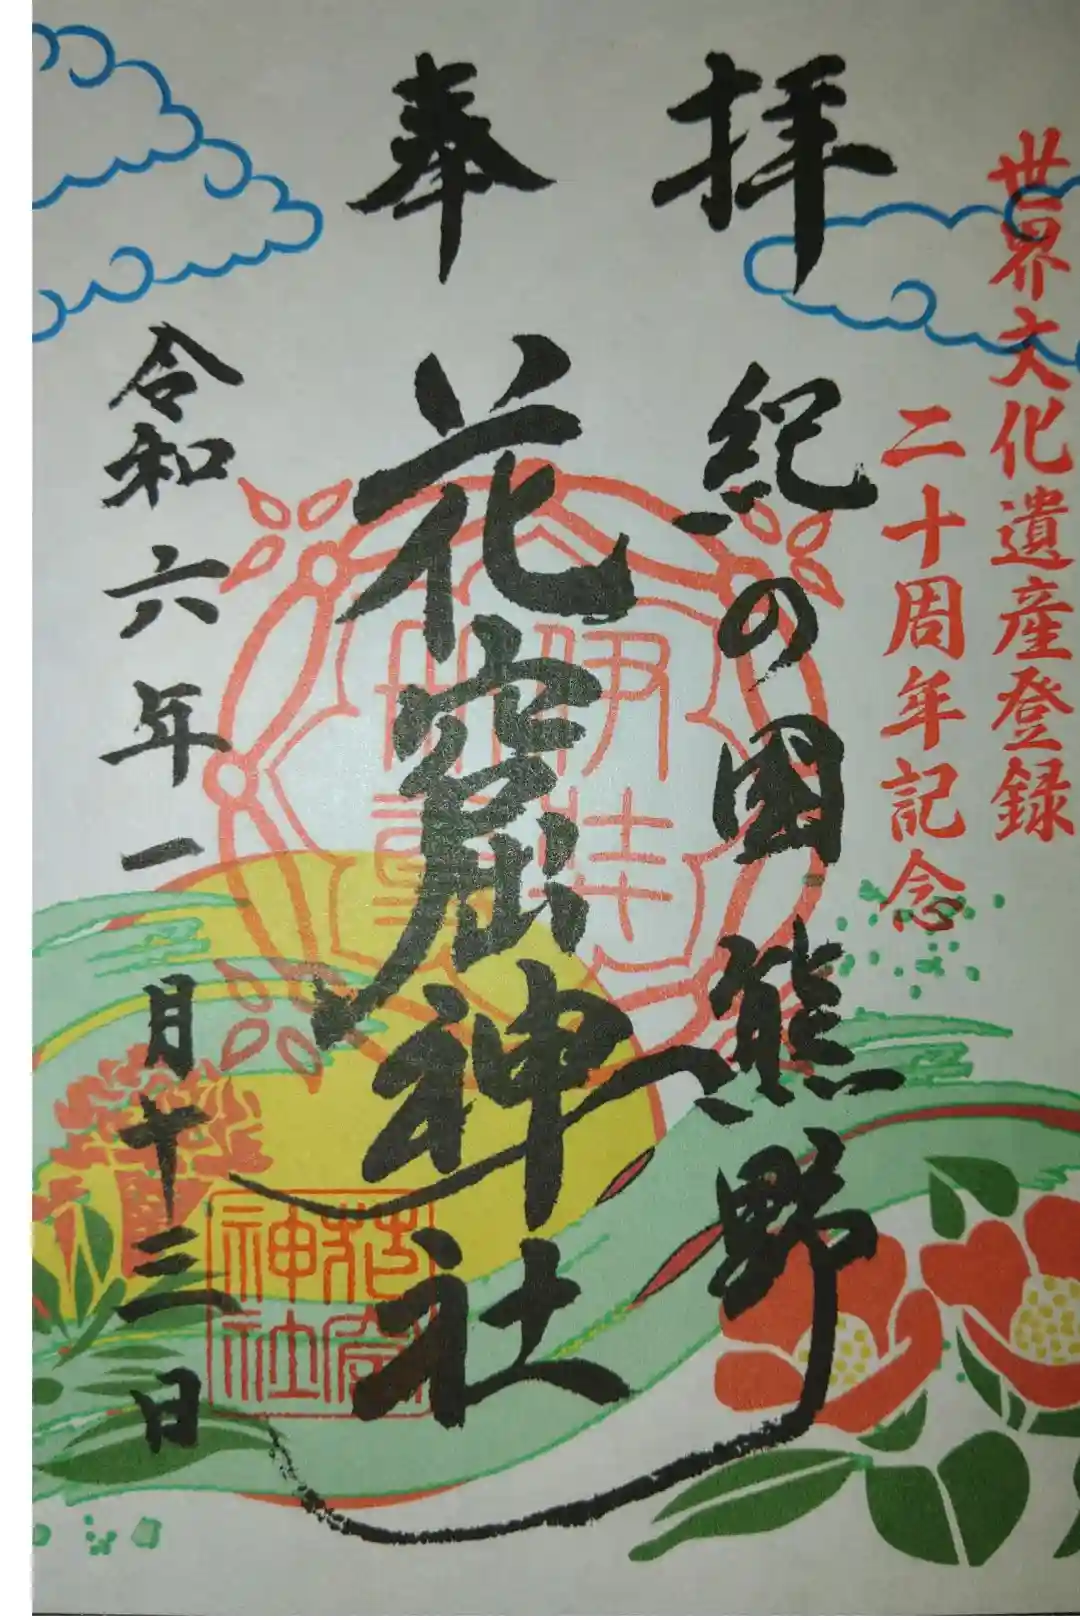 世界文化遺産登録
二十周年記念
奉拝
紀の国熊野
花窟神社
令和六年一月十三日
花窟神社